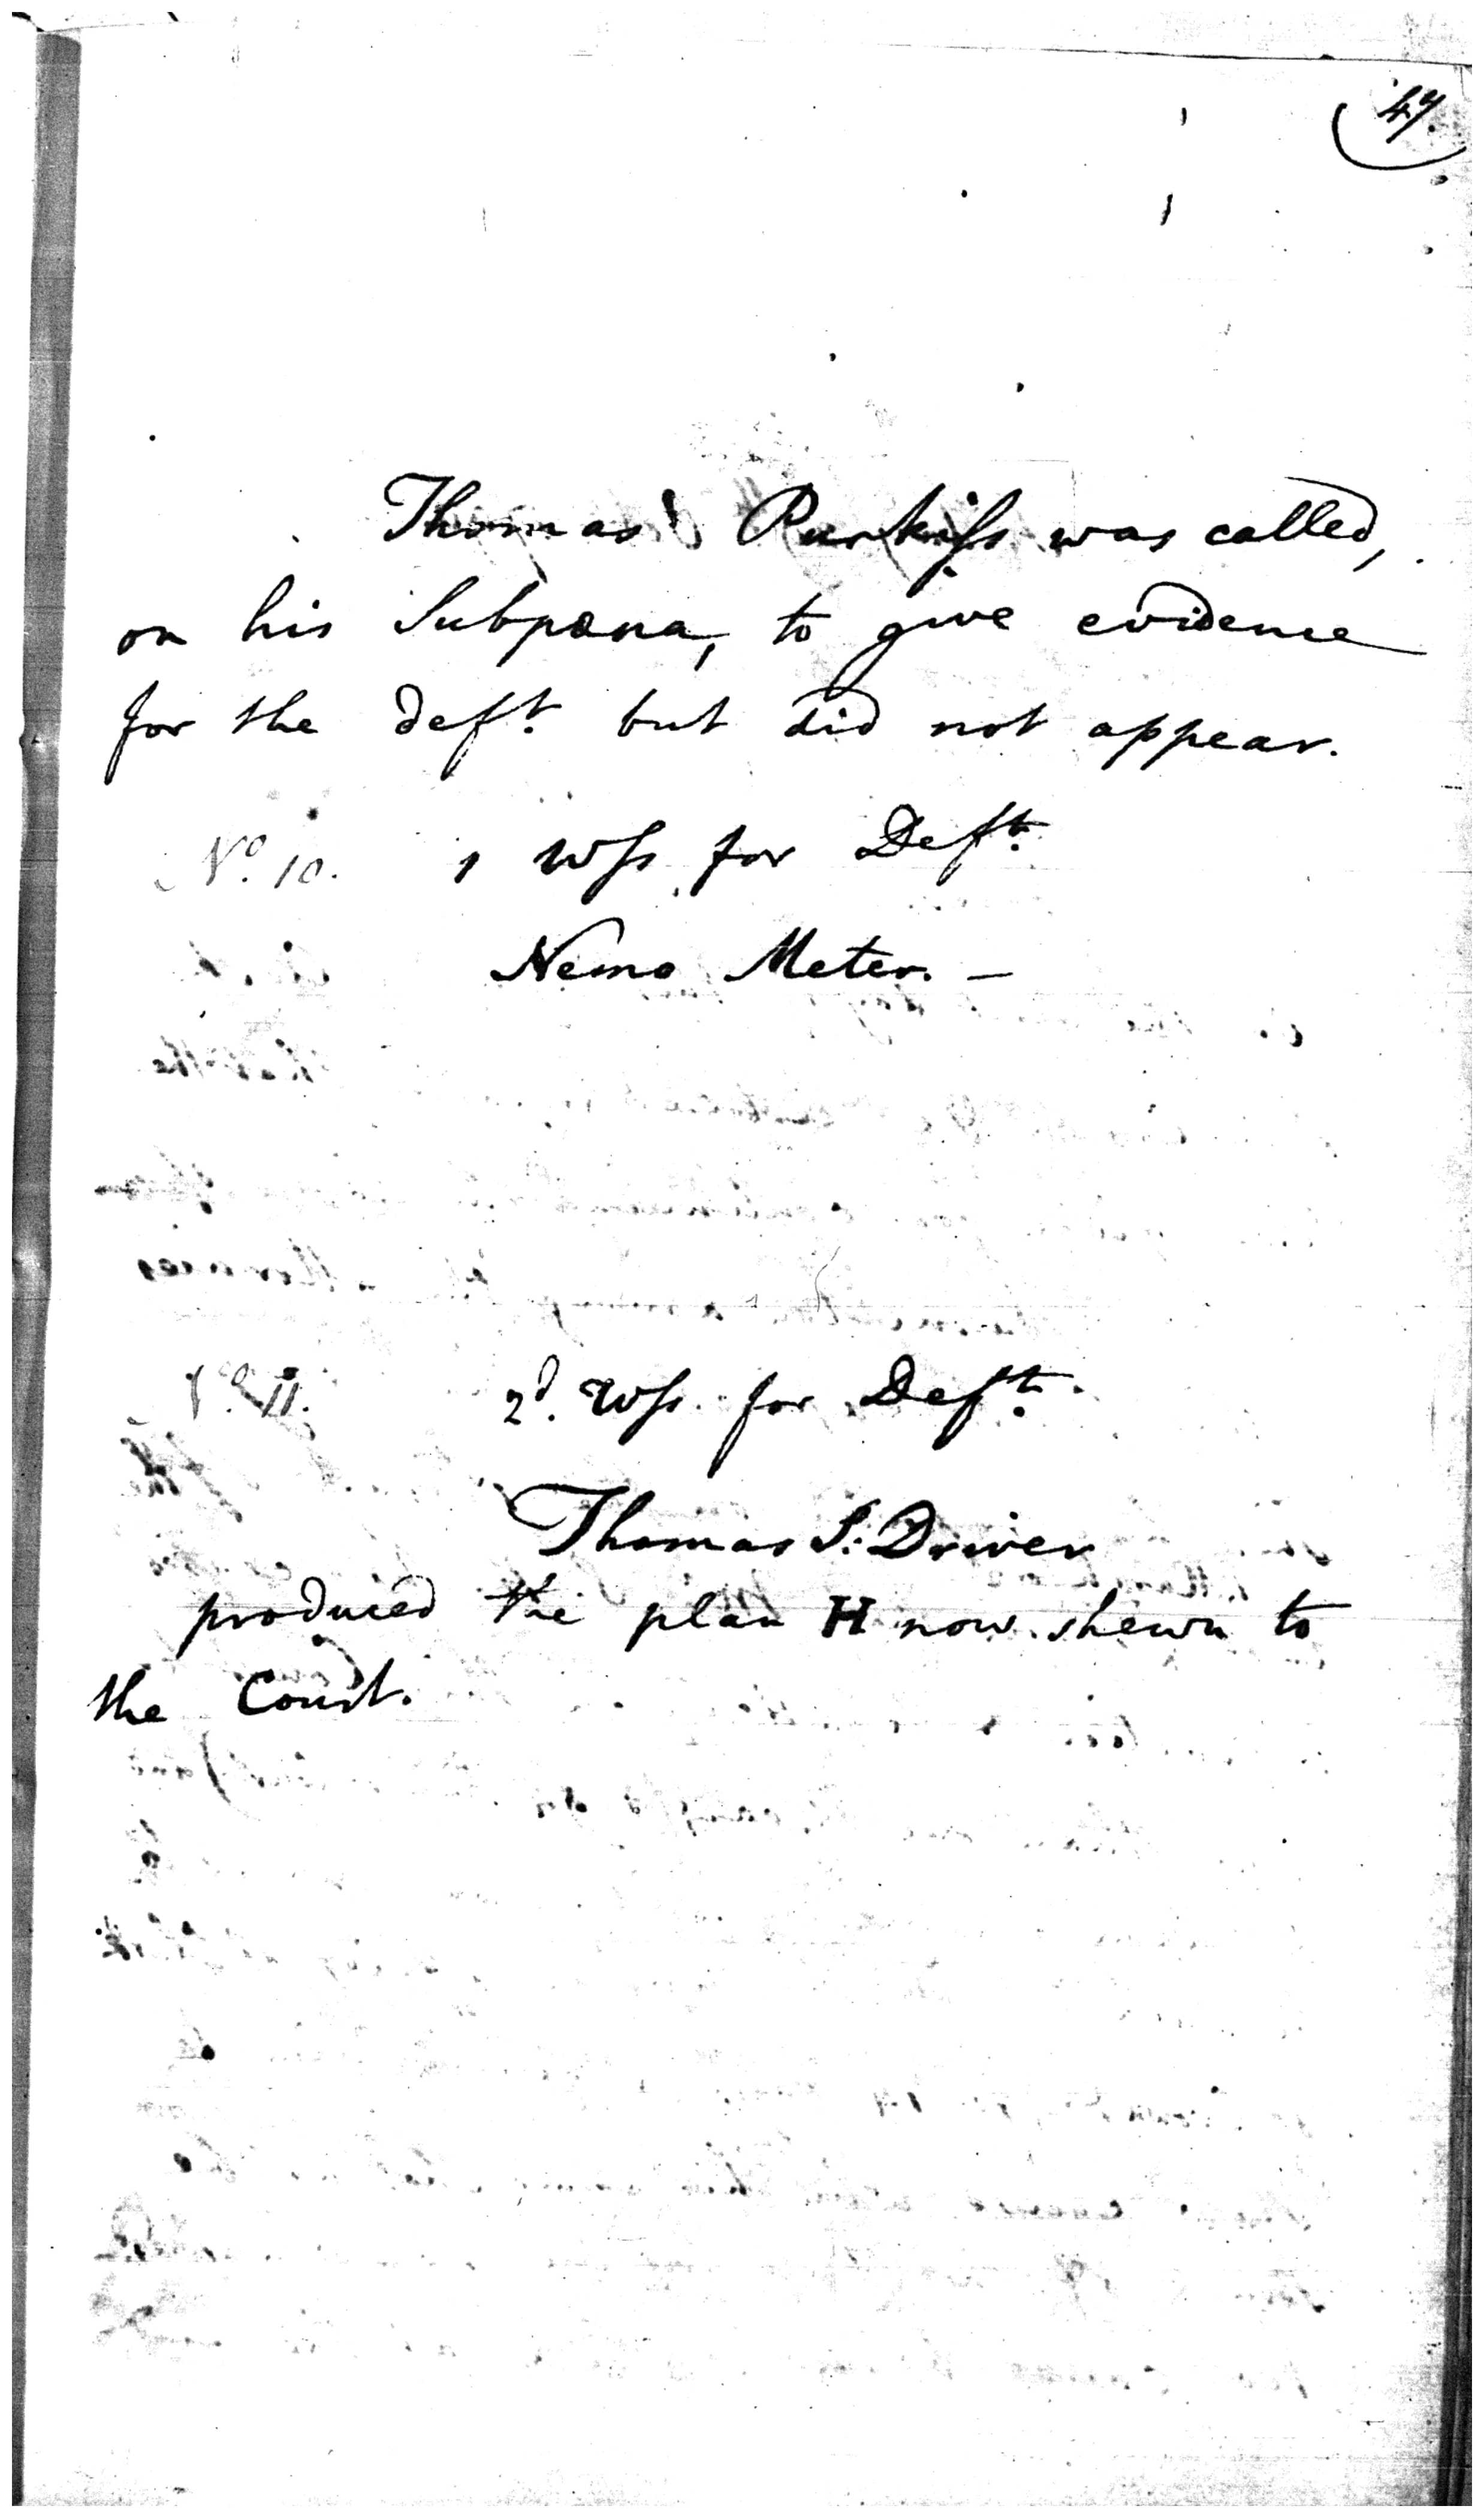 47.
Thomas Purkiss was called,
on his Subpœna, to give evidence
for the deft. but did not appear.
No. 10. 1 Wss for Deft.
Nemo Meter. –
No. 11. 2d. Wss. for Deft.
Thomas S. Driver
produced the plan H now shewn to
the Court.